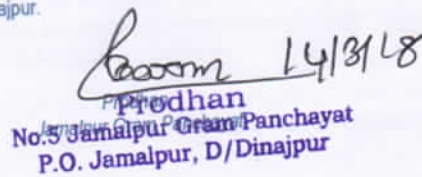 ajpur.
14/3/18
Prodhan
No.5 Jamalpur Gram Panchayat
P.O. Jamalpur, D/Dinajpur